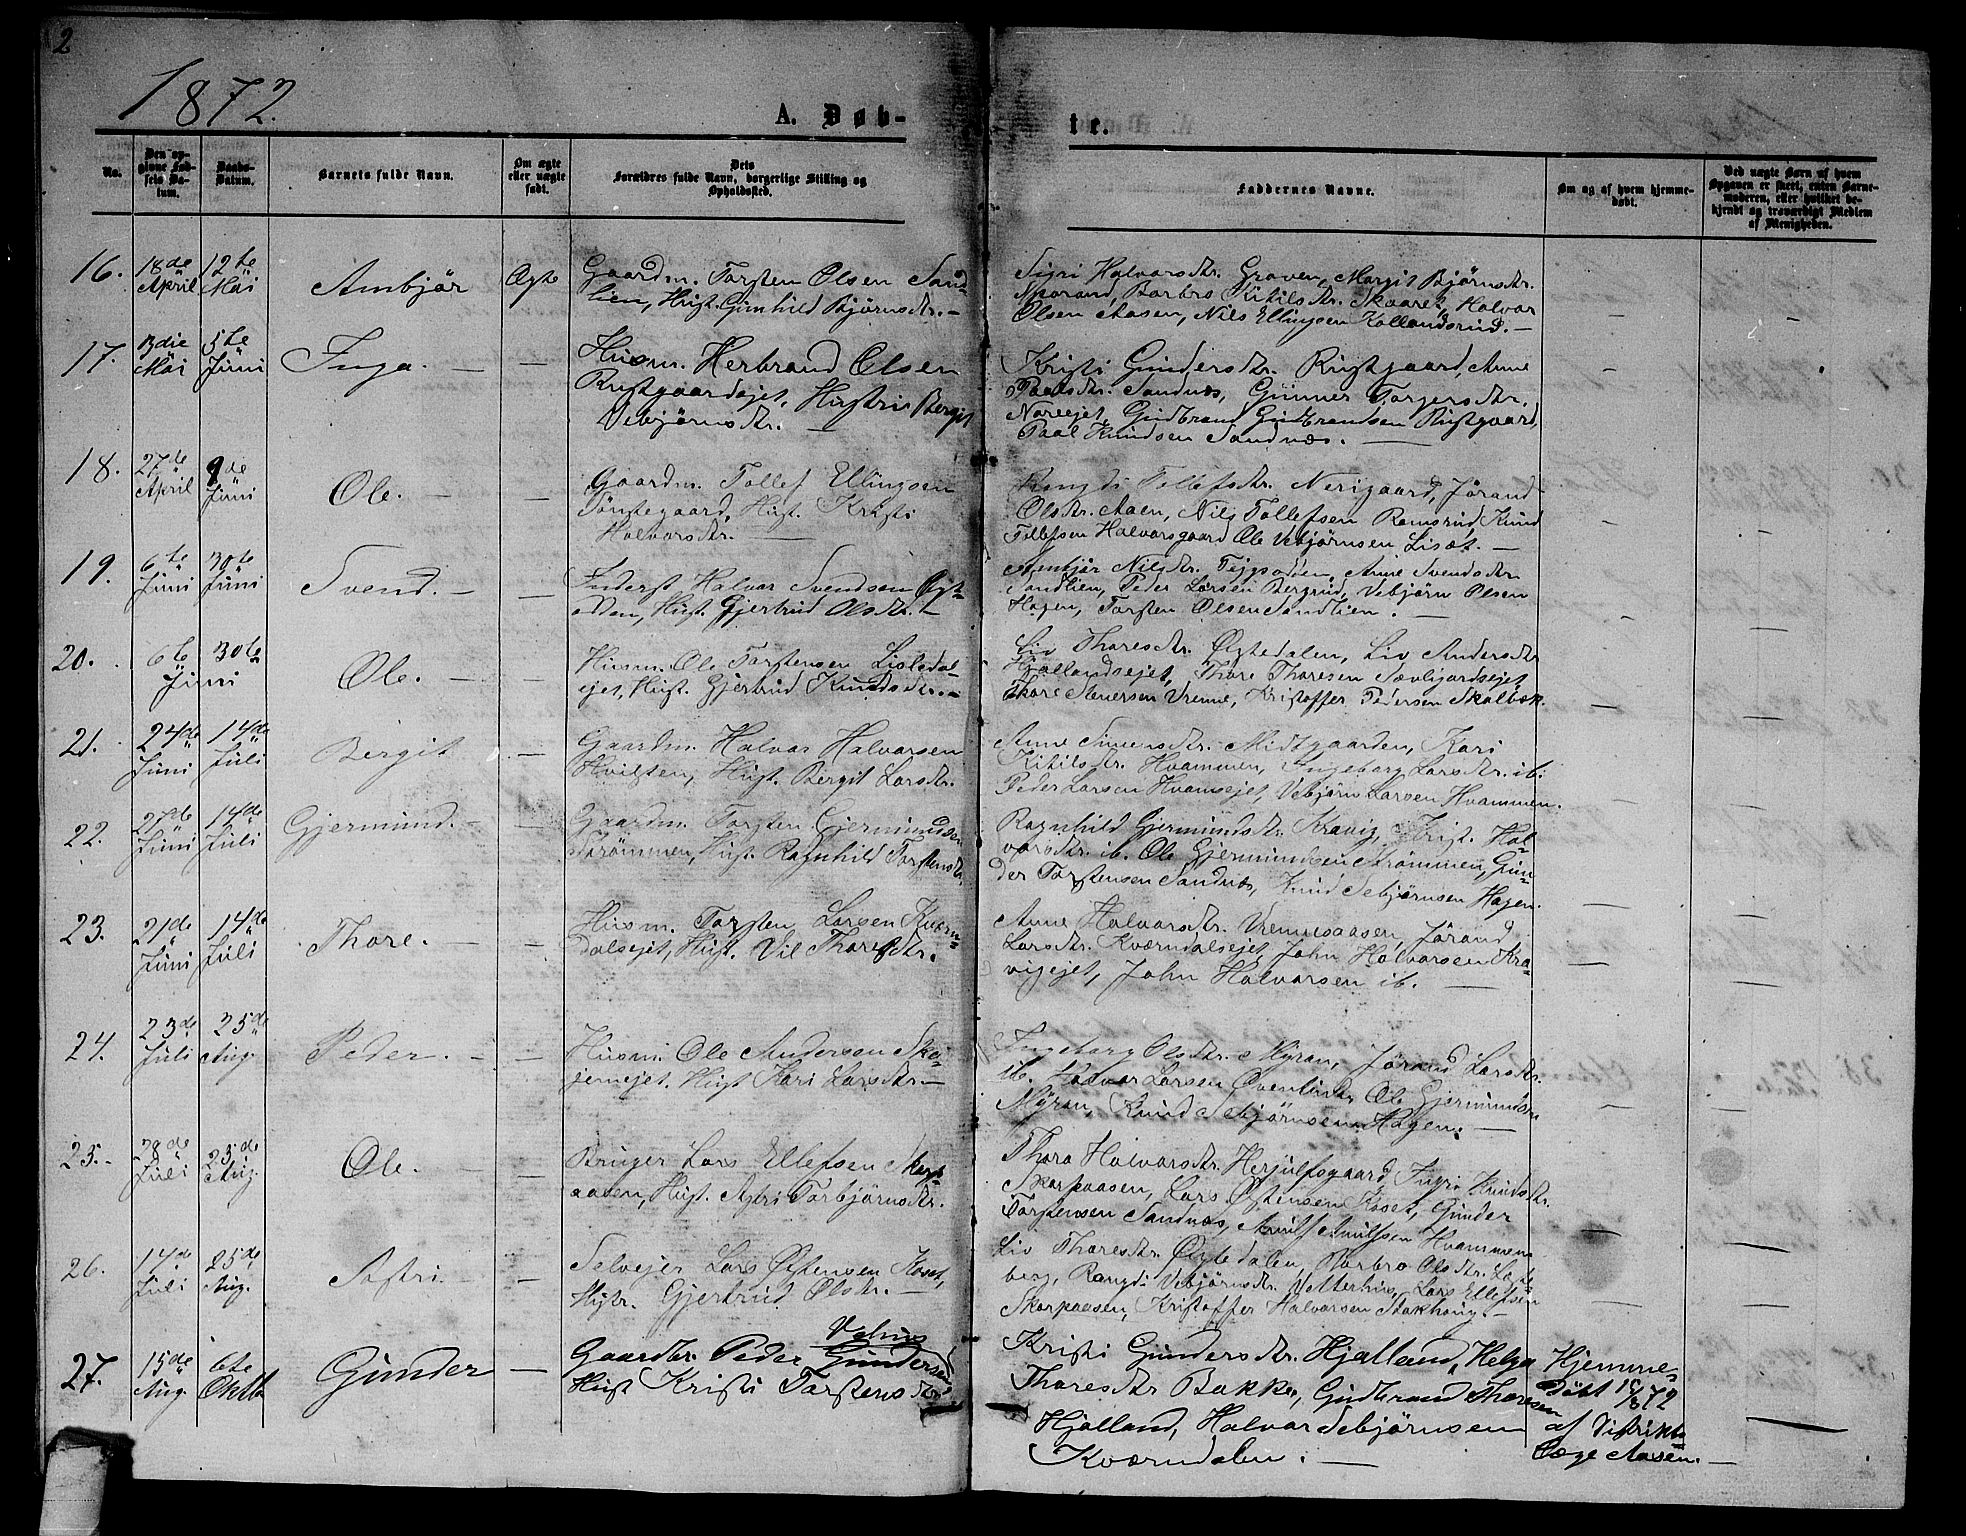 2
1872.
A. Døb-
te.
No.
Den op-
givne Fød-
sels Da-
tum.
Daabs-
Datum.
Barnets fulde Navn.
Om ægte
eller uægte
født.
Dets
Forældres fulde Navn, borgerlige Stilling og
Opholdssted.
Faddernes Navne.
Om og af hvem hjemme-
døbt.
Ved uægte Børn af hvem
Opgaven er skeet, enten Barne-
moderen, eller hvilket be-
kjendt og troværdigt Medlem
af Menigheden.
16. 18de April 12te Mai Ambjør Ægte
Gaardm. Torsten Olsen Sand-
lien, Hust. Gunhild Bjørnsdtr. —
Sigri Halvorsdtr. Graven, Margit Bjørnsdtr.
Sporand, Barbro Kitilsdtr. Skaaret, Halvor
Olsen Aasen, Nils Ellingsen Kollandsrud. —
17. 13die Mai 5te Juni Inga. — —
Husm. Herbrand Olsen
Rustgaardejet, Hustru Bergit
Vebjørnsdtr. —
Kristi Gundersdtr. Rustgaard, Anne
Paalsdtr. Sandnæs, Gunner Torgersdtr.
Noreejet, Gudbrand Gudbrandsen Rustgaard,
Paal Knudsen Sandnæs. —
18. 27de April 9de Juni Ole. — —
Gaardm. Tollef Ellingsen
Tøndegaard, Hust. Kristi
Halvorsdtr. —
Rangdi Tollefsdtr. Nerigaard, Jørand
Olsdtr. Aaen, Nils Tollefsen Ramsrud, Knud
Tollefsen Halvorsgaard Ole Vebjørnsen Lisæt. —
19. 6te Juni 30te Juni Svend. — —
Inderst Halvor Svendsen Øgt-
edden, Hust. Gjertrud Olsdtr. —
Ambjør Nilsdtr. Anne Svendsdtr.
Sandlien, Peder Larsen Bergrud, Vebjørn Olsen
Hagen, Torsten Olsen Sandlien.
20. 6te Juni 30te Ole. — —
Husm. Ole Torstensen Lisledal-
ejet, Hust. Gjertrud Knudsdtr. —
Liv Thoresdtr. Øgtedalen, Liv Andersdtr.
Hjallandsejet, Thore Thoresen Sævligardsejet
Thore Stenersen Vrenne, Kristoffer Pedersen Skalbæk.
21. 24de Juni 14de Juli Bergit — —
Gaardm. Halvor Halvorsen
Hvilsten, Hust. Bergit Larsdtr.
Anne Simensdtr. Midtgaarden, Kari
Kitilsdtr. Hvammen, Ingeborg Larsdtr. ib.
Peder Larsen Hvamsejet, Vebjørn Larsen Hvammen.
22. 27de Juni 14de Juli Gjermund. — —
Gaardm. Torsten Gjermundsen
Strømmen, Hust. Ragnhild Torstensdtr.
Ragnhild Gjermundsdtr. Kravig, Krist. Hal-
vorsdtr. ib. Ole Gjermundsen Strømmen, Gun-
der Torstensen Sandnæs, Knud Sebjørnsen Hagen.
23. 21de Juni 14de Juli Thore. — —
Husm. Torsten Larsen Kværn-
dalsejet, Hust. Vil Thoresdtr.
Anne Halvorsdtr. Vrenneaasen, Jørand
Larsdtr. Kværndalsejet, John Halvorsen Kra-
vigejet, John Halvorsen ib. —
24. 23de Juli 25de Aug. Peder. — —
Husm. Ole Andersen Skj-
jernejet, Hust Kari Larsdtr. —
Ingeborg Olsdtr. Myran, Jørand Larsdtr.
ib. Halvor Larsen Ole Gjermundsen
Myran, Knud Sebjørnsen Hagen. —
25. 28de Juli 25de Aug. Ole. — —
Bruger Lars Ellefsen Skarp-
aasen, Hust. Astri Torbjørnsdtr.
Thora Halvorsdtr. Herjulfsgaard, Ingri Knudsdtr.
Skarpaasen, Lars Østensen Koset, Gunder
Torstensen Sandnæs, Anulf Anulfsen Hvammen.
26. 14de Juli 25de Aug. Astri. — —
Selvejer Lars Østensen Koset,
Hustr. Gjertrud Olsdtr. —
Liv Thoresdtr. Øgtedalen, Barbro Olsdtr. Løgte-
berg, Rangdi Vebjørnsdtr. Vetterhus, Lars Ellefsen
Skarpaasen, Kristoffer Halvorsen Stokhaug. —
27. 15de Aug. 6te Oktb Gunder —
Gaardbr. Peder Gundersen
Hust Kristi Torstensdtr.
Kristi Gundersdtr. Hjalland, Helga
Thoresdtr Bakke, Gudbrand Thoresen
Hjalland, Halvor Sebjørnsen
Kværndalen. —
Hjemme-
døbt 15/8 72
af Distrikts
Læge Aasen. —